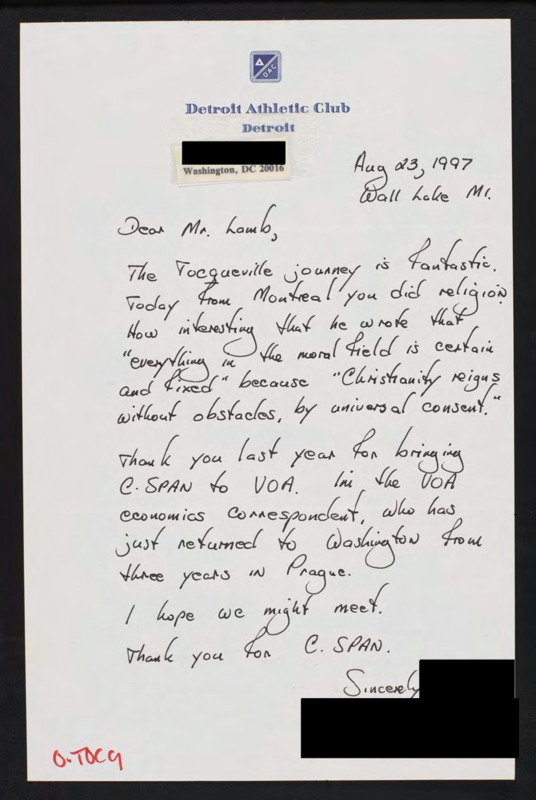 DAC
Detroit Athletic Club
Detroit
Washington, DC 20016
Aug 23, 1997
Wall Lake Mi.
Dear Mr. Lamb,
The Tocqueville journey is fantastic.
Today from Montreal you did religion.
How interesting that he wrote that
"everything in the moral field is certain
and fixed" because "Christianity reigns
without obstacles, by universal consent."
Thank you last year for bringing
C-SPAN to VOA. I'm the VOA
economics correspondent, who has
just returned to Washington from
three years in Prague.
I hope we might meet.
Thank you for C-SPAN.
Sincerely
O-TOCQ